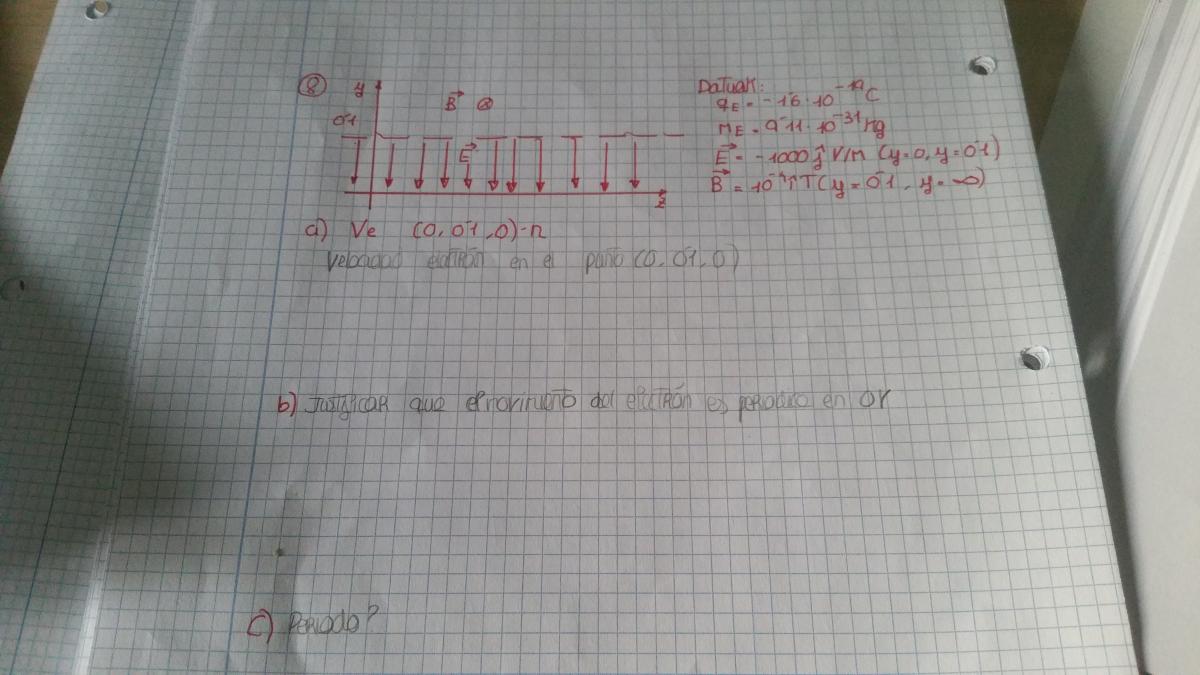 8 y
B ⊗
0'1
E
z
Datuak:
qE = -1'6 · 10^-19 C
mE = 9'11 · 10^-31 kg
E = -1000 ĵ V/m (y=0, y=0'1)
a) Ve (0, 0'1, 0)-n
velocidad electrón en el punto (0, 0'1, 0)
b) Justificar que el movimiento del electrón es periodico en OY
c) Periodo?